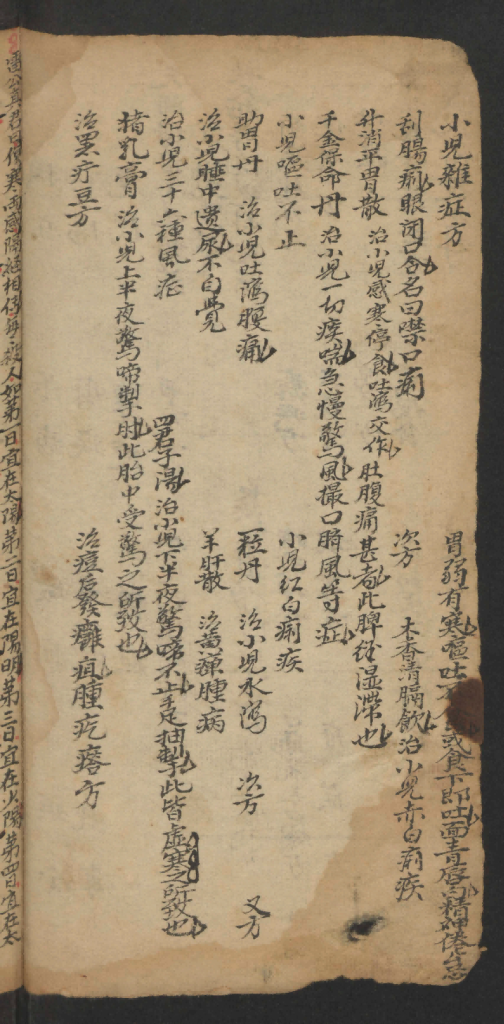 小兒雜症方　胃弱有寒嘔吐不食或食下即吐面青唇白精神倦怠
刮腸痢眼閉口合名曰噤口痢　次方　木香清膈飲治小兒赤白痢疾
升消平胃散　治小兒感寒停食吐瀉交作肚腹痛甚者此脾徐濕滯也
千金保命丹　治小兒一切疾喘急慢驚風撮口臍風等症
小兒嘔吐不止　小兒紅白痢疾
助胃丹　治小兒吐瀉腹痛　一粒丹　治小兒水瀉　次方　又方
治小兒睡中遺尿不自覺　羊肝散　治黃獺腫病
治小兒三十六種風症　四君子湯　治小兒下半夜驚啼不止手足抽掣此皆虛寒之所致也
猪乳膏　治小兒上半夜驚啼掣肘此胎中受驚之所致也
治黑疔豆方　治痘后發癰疽腫疙瘩方
雷公真君曰傷寒兩感陽經相傳每殺人如第一日宜在太陽第二日宜在陽明第三日宜在少陽第四日宜在太